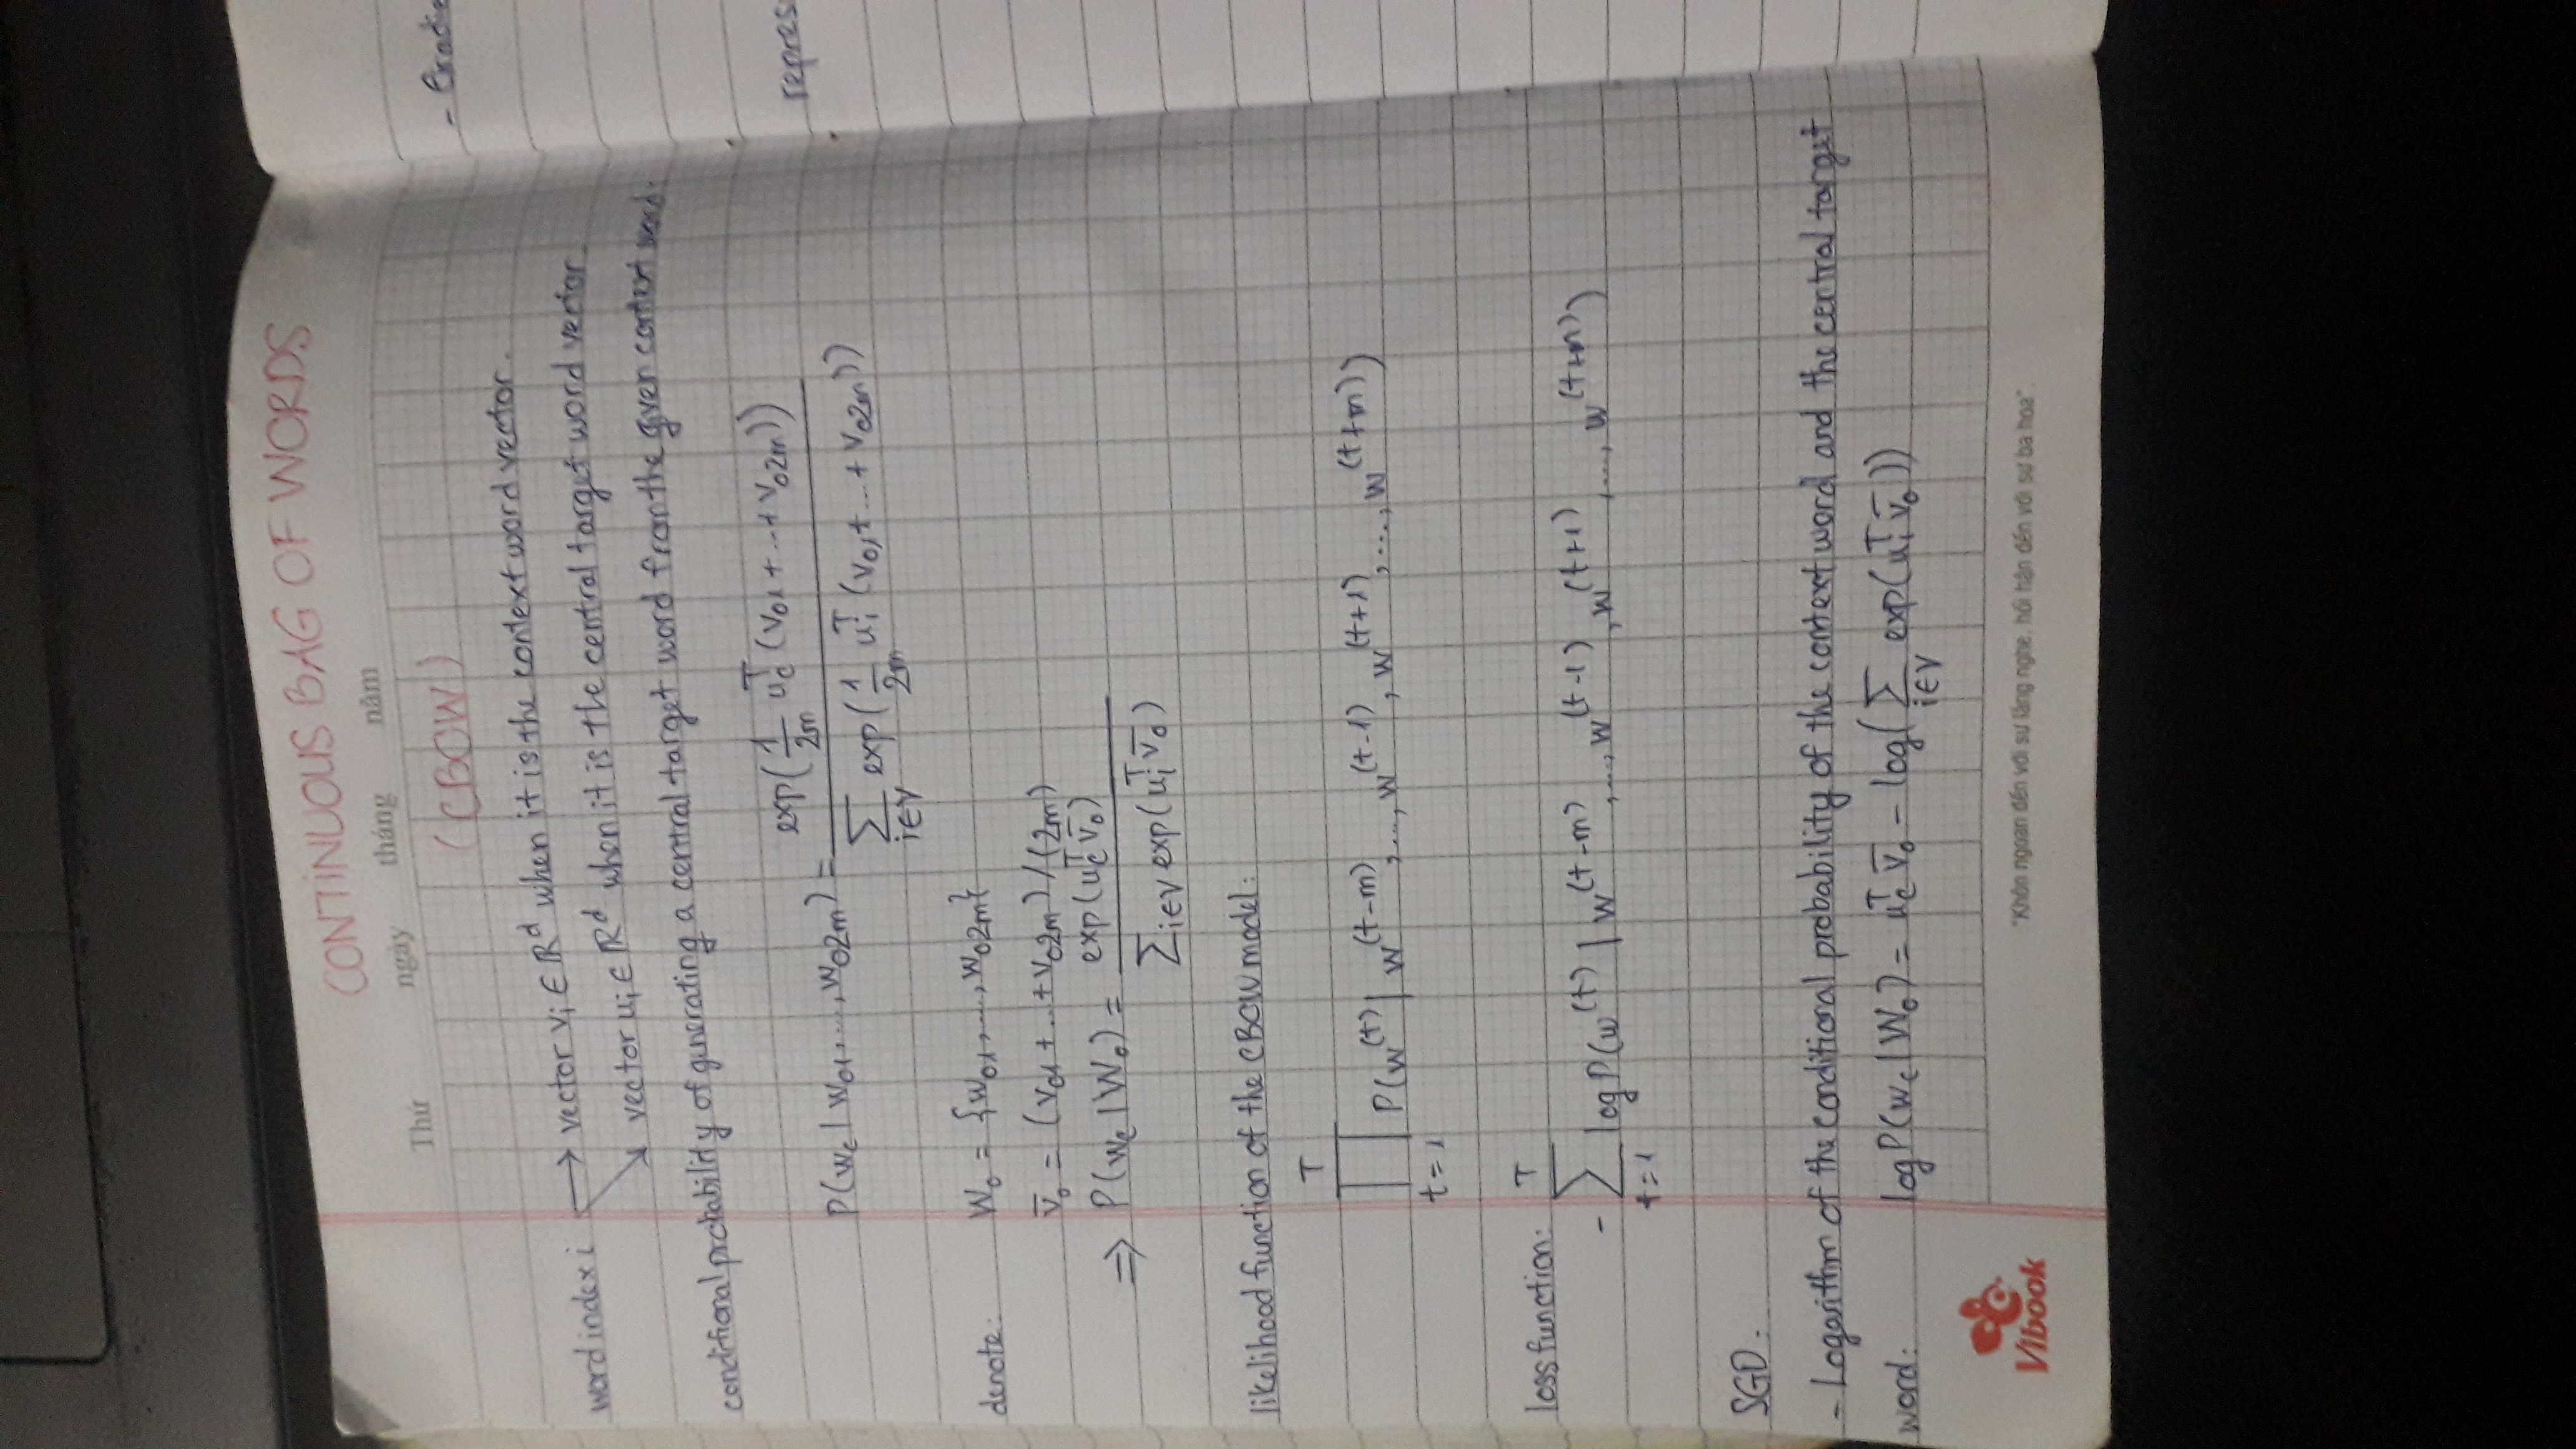 CONTINUOUS BAG OF WORDS
Thứ ngày tháng năm
(CBOW)
word index i → vector vᵢ ∈ ℝᵈ when it is the context word vector.
↘ vector uᵢ ∈ ℝᵈ when it is the central target word vector.
conditional probability of generating a central target word from the given context word.
P(w_c | w_o1, ..., w_o2m) = exp(1/2m u_c^T (v_o1 + ... + v_o2m)) / ∑_{i∈V} exp(1/2m u_i^T (v_o1 + ... + v_o2m))
denote: W_o = {w_o1, ..., w_o2m}
v̄_o = (v_o1 + ... + v_o2m) / (2m)
⇒ P(w_c | W_o) = exp(u_c^T v̄_o) / ∑_{i∈V} exp(u_i^T v̄_o)
likelihood function of the CBOW model:
∏_{t=1}^{T} P(w^(t) | w^(t-m), ..., w^(t-1), w^(t+1), ..., w^(t+m))
loss function:
- ∑_{t=1}^{T} log P(w^(t) | w^(t-m), ..., w^(t-1), w^(t+1), ..., w^(t+m))
SGD.
- Logarithm of the conditional probability of the context word and the central target
word: log P(w_c | W_o) = u_c^T v̄_o - log(∑_{i∈V} exp(u_i^T v̄_o))
Vibook
"Khôn ngoan đến với sự lắng nghe, hối hận đến với sự ba hoa".